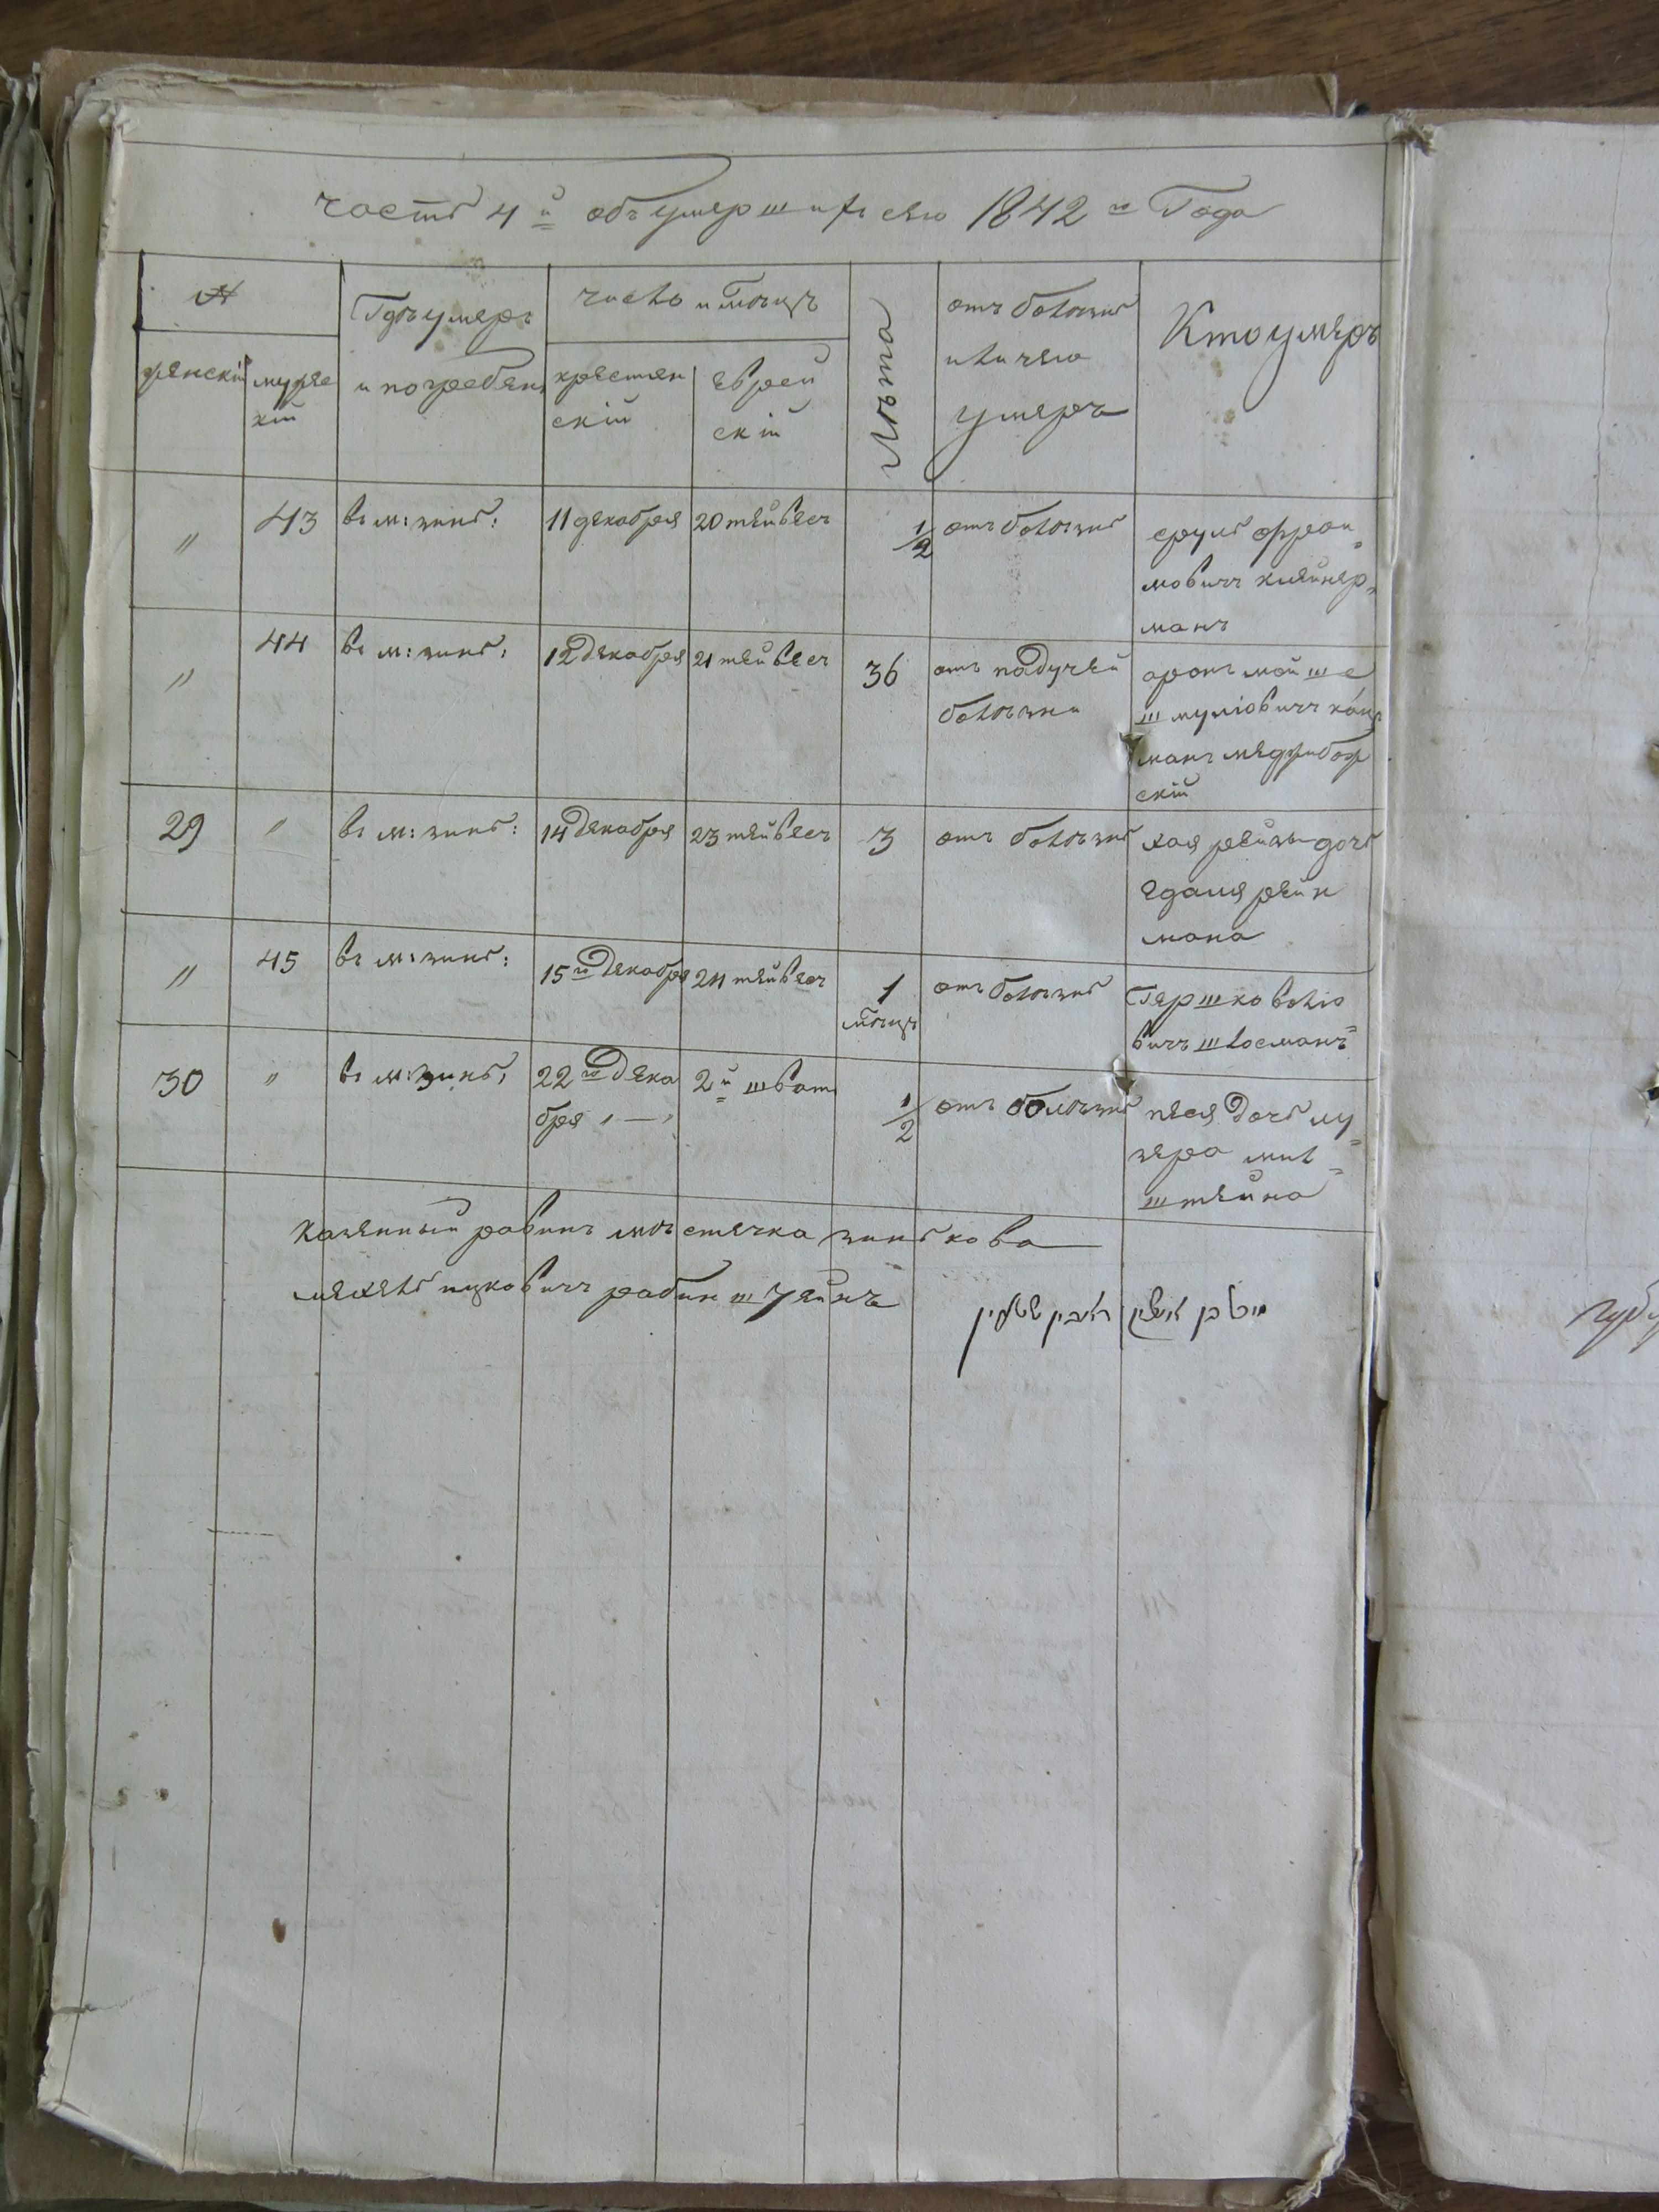 часть 4й объ умершихъ сего 1842го Года
№
Гдѣ умеръ
и погребенъ
число и мѣцъ
Лѣта
отъ болѣзни
или чего
умеръ
Кто умеръ
женскій
мужес
кій
христиан
скій
еврей
скій
"
43
въ м: зинь:
11 декабря
20 тейвесъ
1/2
отъ болѣзнь
сруль фрои=
мовичъ клейнер=
манъ
"
44
въ м: зинь:
12 декабря
21 тейвесъ
36
отъ падучей
болѣзни
аронъ мойше
шмуліовичъ
манъ межибож
скій
29
"
въ м: зинь:
14 декабря
23 тейвесъ
3
отъ болѣзнь
хая рейзы дочь
едаля рейн
мана
"
45
въ м: зинь:
15го декабря
24 тейвесъ
1
мѣцъ
отъ болѣзнь
Гершко волко
вичъ шлосманъ
30
"
въ м: зинь:
22го дека
бря " — "
2й шватъ
1/2
отъ болѣзнь
песя дочь лу=
зера мил=
штейна
Казенный равинъ мѣстечка зинькова
мехель ицковичъ рабинштейнъ
ראבין שטיין